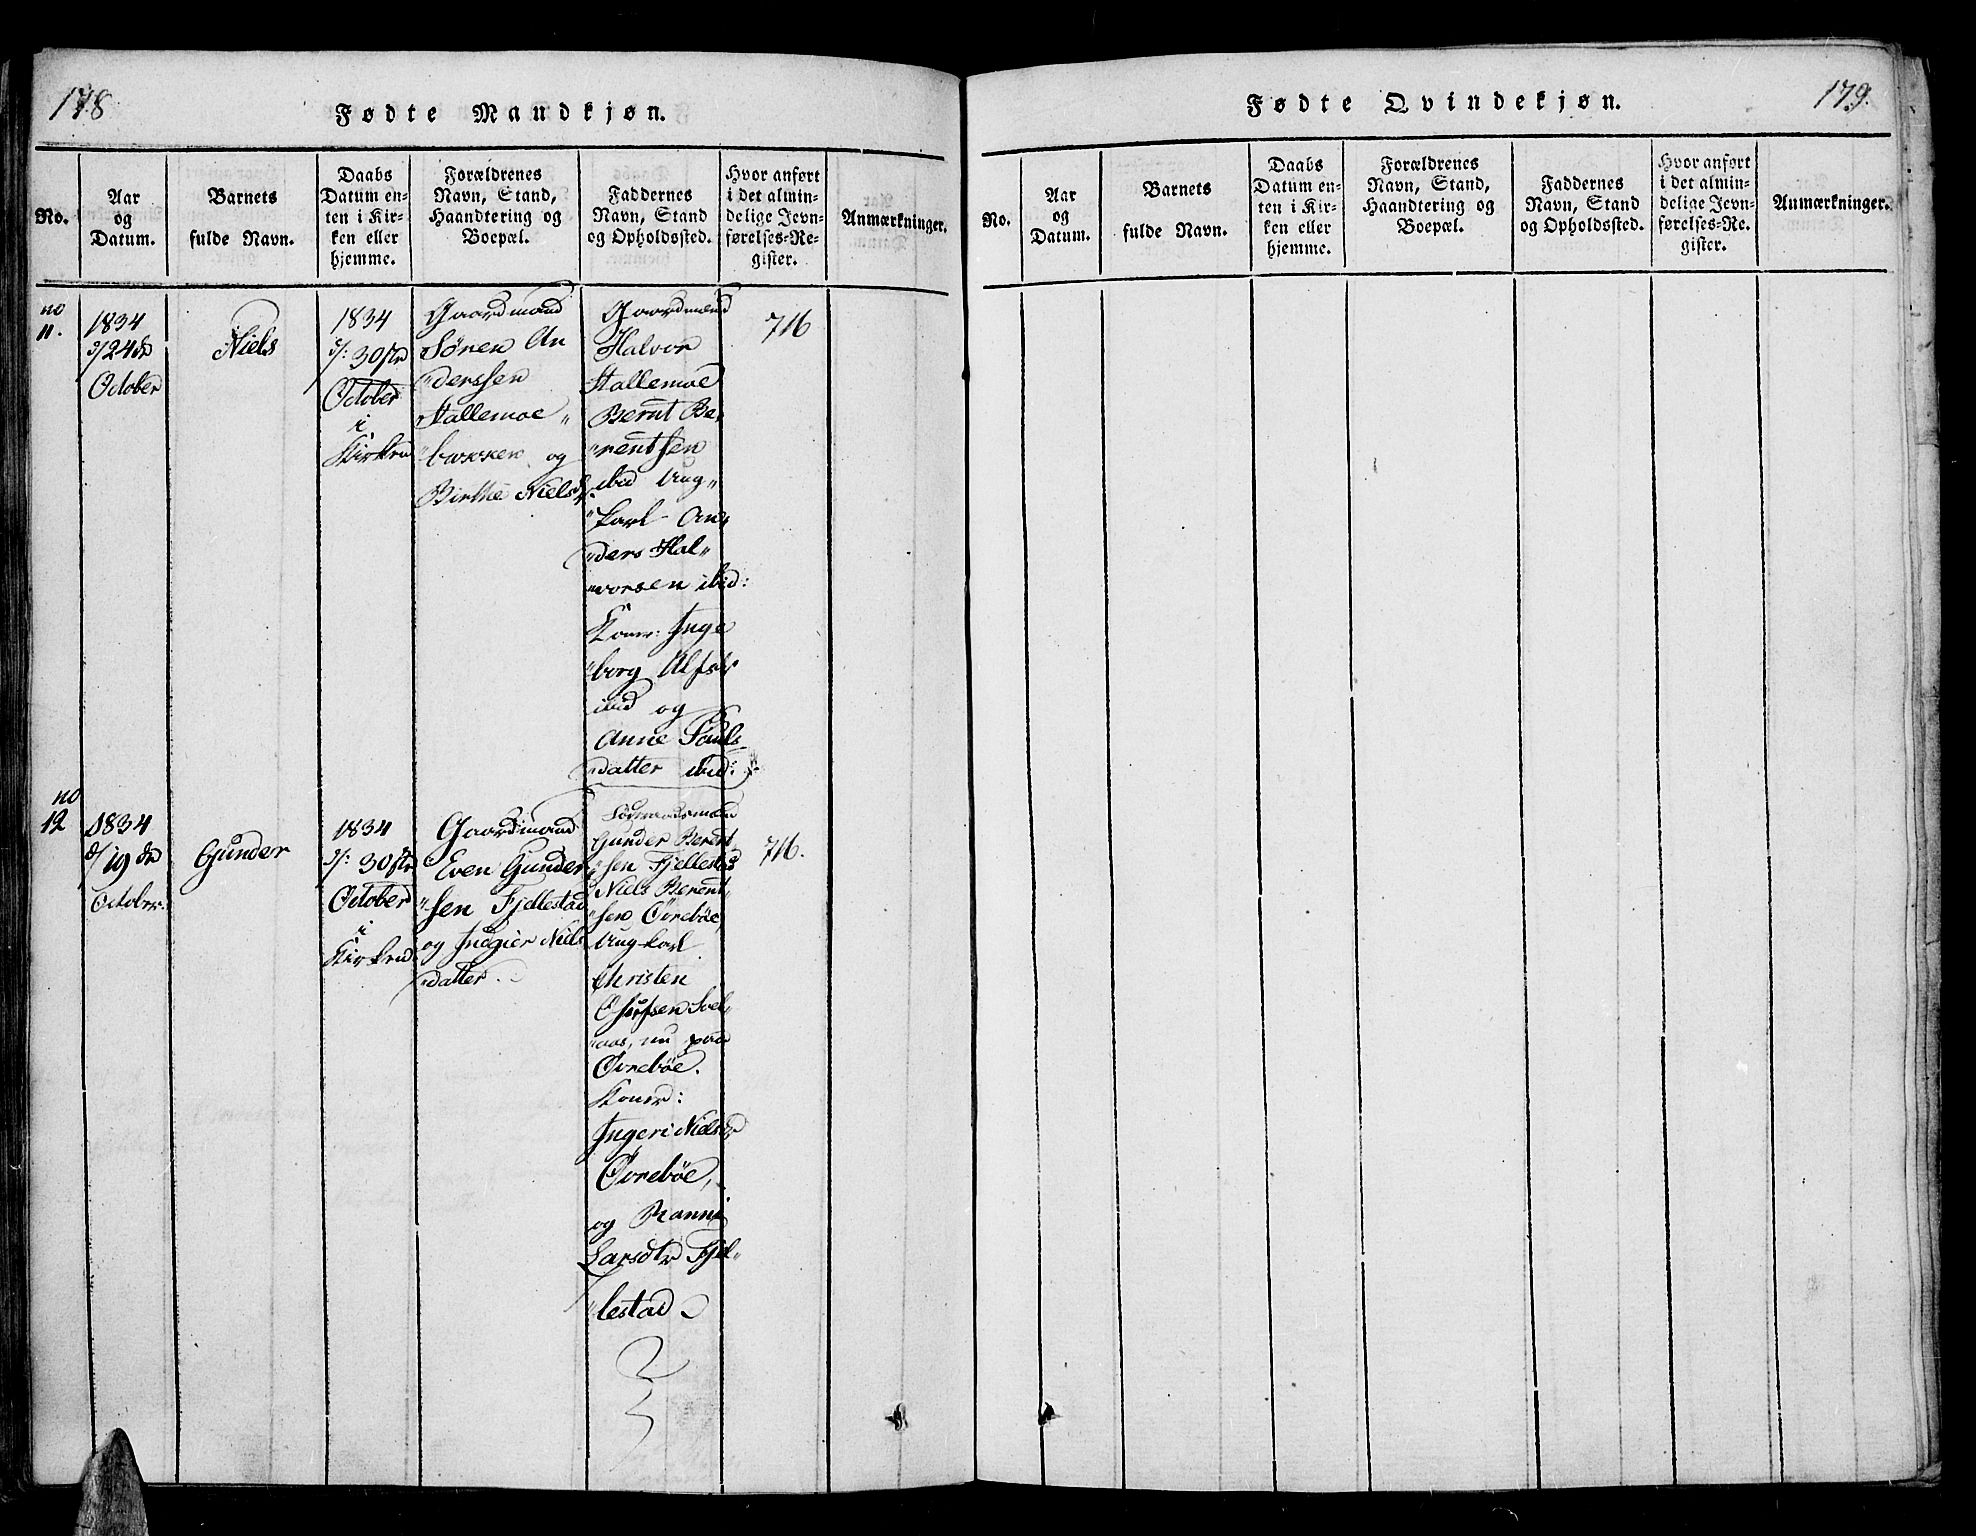 178
Fødte Mandkjøn.
No.
Aar
og
Datum.
Barnets
fulde Navn.
Daabs
Datum en-
ten i Kir-
ken eller
hjemme.
Forældrenes
Navn, Stand,
Haandtering og
Boepæl.
Faddernes
Navn, Stand
og Opholdssted.
Hvor anført
i det almin-
delige Jevn-
førelses-Re-
gister.
Anmærkninger.
no
11.
1834
d/24de
October
Niels
1834
d/: 30te
October
i
Kirken
Gaardmand
Søren An
"derssen
Stallemoe"
"bakken og
Birthe Nielsd.
Gaardmænd
Halvor
Stallemoe
Bernt Be,
"rentsen
ibid Ung"
"karl An,
"ders Hal"
"vorsen ibid:
Koner: Inge
"borg Alfsdr
ibid og
Anne Pauls
"datter ibid:
716
no
12
1834
d/19de
October.
Gunder
1834
d/: 30te
October
i
Kirken
Gaardmand
Even Gunder
"sen Fjellestad
og Inegier Niels
"datter.
Gunder Berent
"sen Fjellestad
Niels Berent,
"sen Øvrebøe,
Ungkarl
Christen
nu paa
Øvrebøe.
Koner:
Ingeri Nielsd
Øvrebøe,
og Ranni
Larsdtr Fjel"
"lestad
716.
179.
Fødte Qvindekjøn.
No.
Aar
og
Datum.
Barnets
fulde Navn.
Daabs
Datum en-
ten i Kir-
ken eller
hjemme.
Forældrenes
Navn, Stand,
Haandtering og
Boepæl.
Faddernes
Navn, Stand
og Opholdssted.
Hvor anført
i det almin-
delige Jevn-
førelses-Re-
gister.
Anmærkninger.